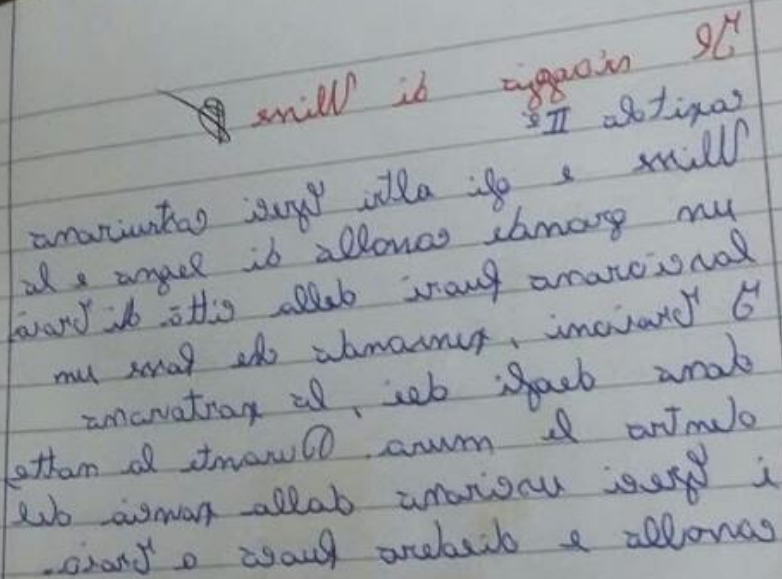 Il viaggio di Ulisse
capitolo II°
Ulisse e gli altri Greci costruirono
un grande cavallo di legno e lo
lasciarono fuori della città di Troia
I Troiani, pensando che fosse un
dono degli dei, lo portarono
dentro le mura. Durante la notte
i Greci uscirono dalla pancia del
cavallo e diedero fuoco a Troia.